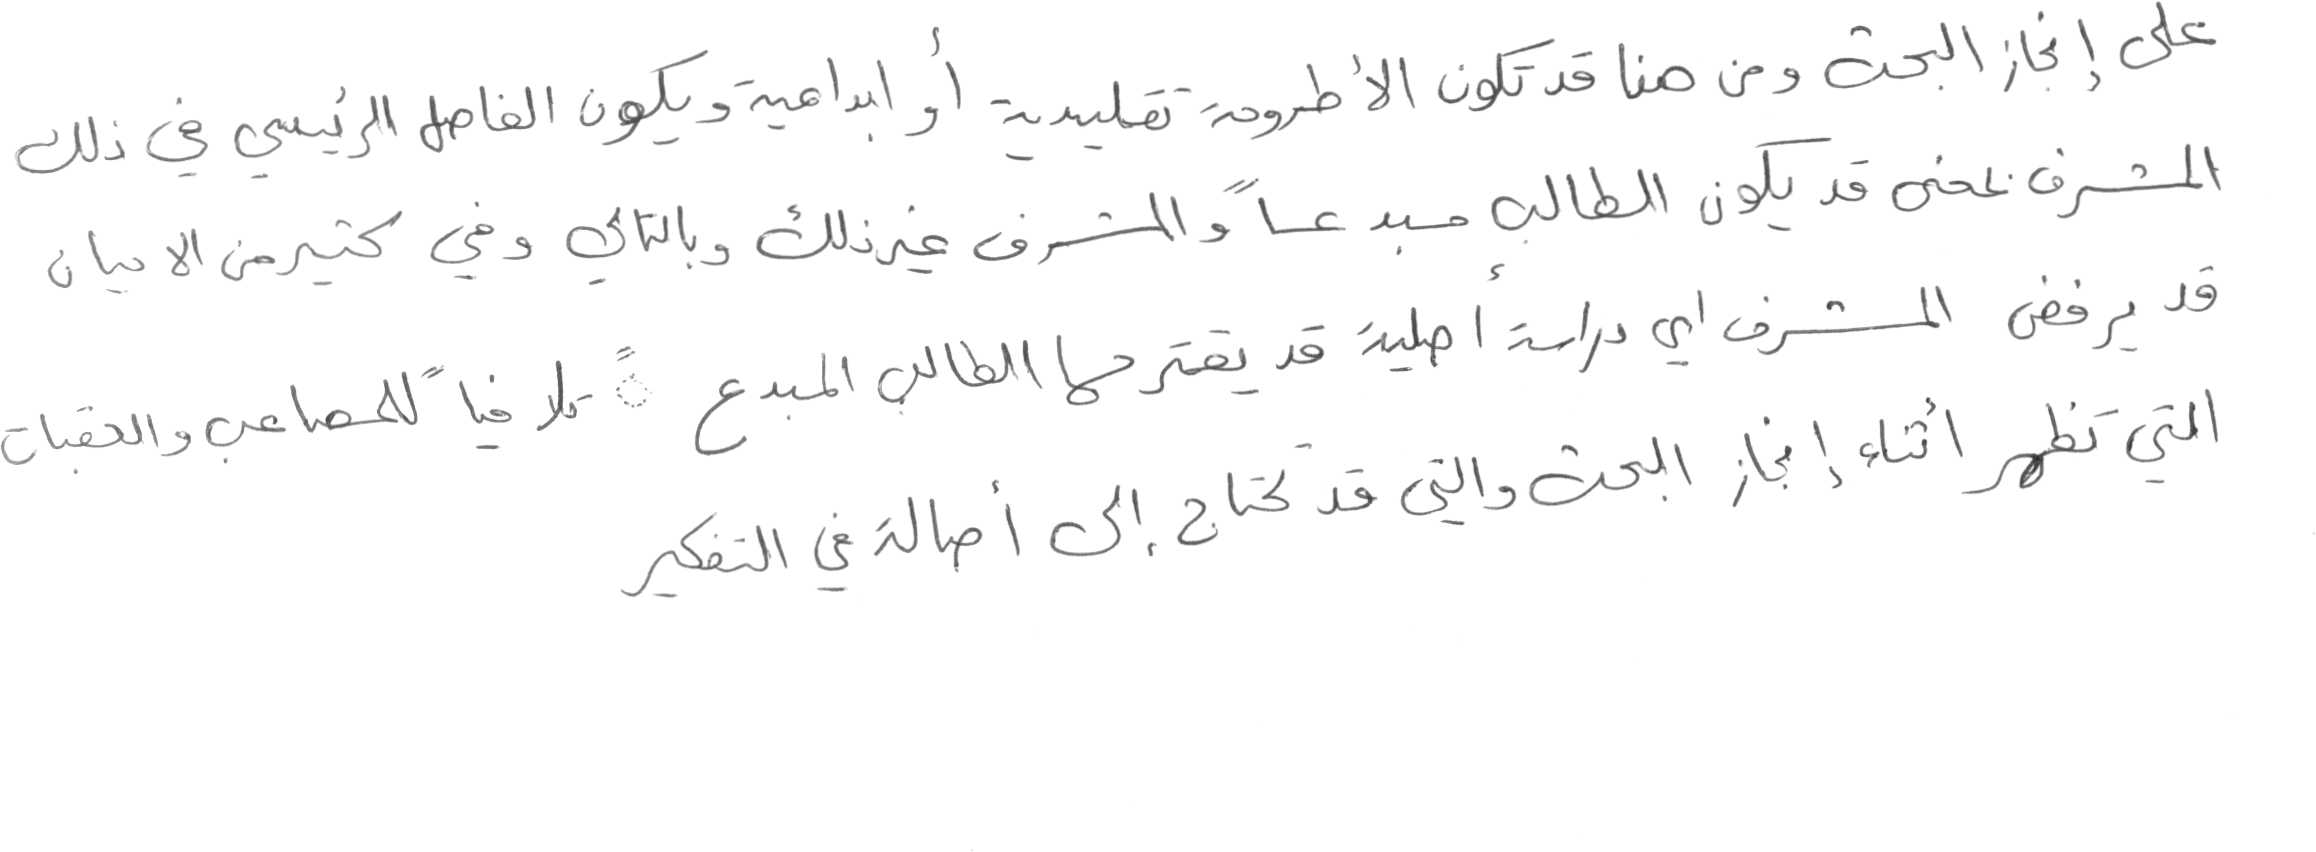 على إنجاز البحث ومن هنا قد تكون الأطروحة تقليدية أو ابداعية ويكون الفاصل الرئيسي في ذلك
المشرف فحتى قد يكون الطالب مبدعاً والمشرف غير ذلك وبالتالي وفي كثير من الاحيان
قد يرفض المشرف اي دراسة أصلية قد يقترحها الطالب المبدع ً تلافياً للمصاعب والعقبات
التي تظهر أثناء إنجاز البحث والتي قد تحتاج إلى أصالة في التفكير